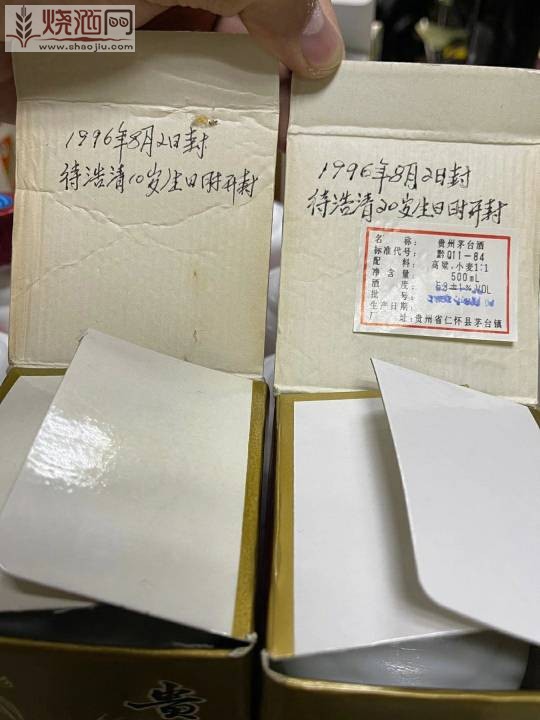 烧酒网
www.shaojiu.com
1996年8月2日封
待浩清10岁生日时开封
1996年8月2日封
待浩清20岁生日时开封
名 称: 贵州茅台酒
标准代号: 黔Q11-84
配 料: 高粱、小麦1:1
净含量: 500mL
酒 度: 53±1% VOL
批 号:
生产日期:
厂 址: 贵州省仁怀县茅台镇
貴